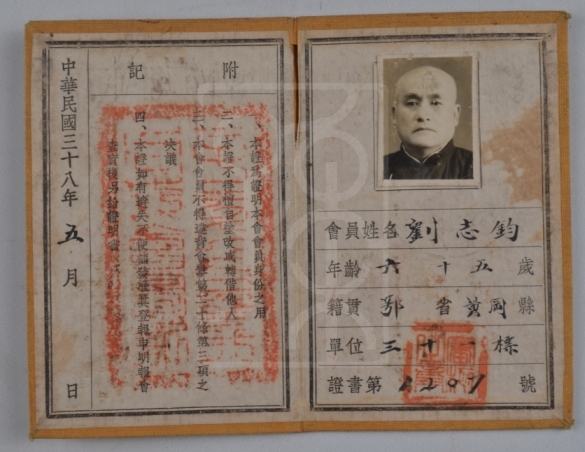 會員姓名 劉志鈞
年齡 六十五歲
籍貫 鄂省黃岡縣
單位 三十一標
證書第 1207 號
附記
一、本證為證明本會會員身份之用
二、本證不得擅自塗改或轉借他人
三、本會會員不得違背會章第二十條第三項之
決議
四、本證如有遺失
查實後另給證明書
中華民國三十八年 五月 日